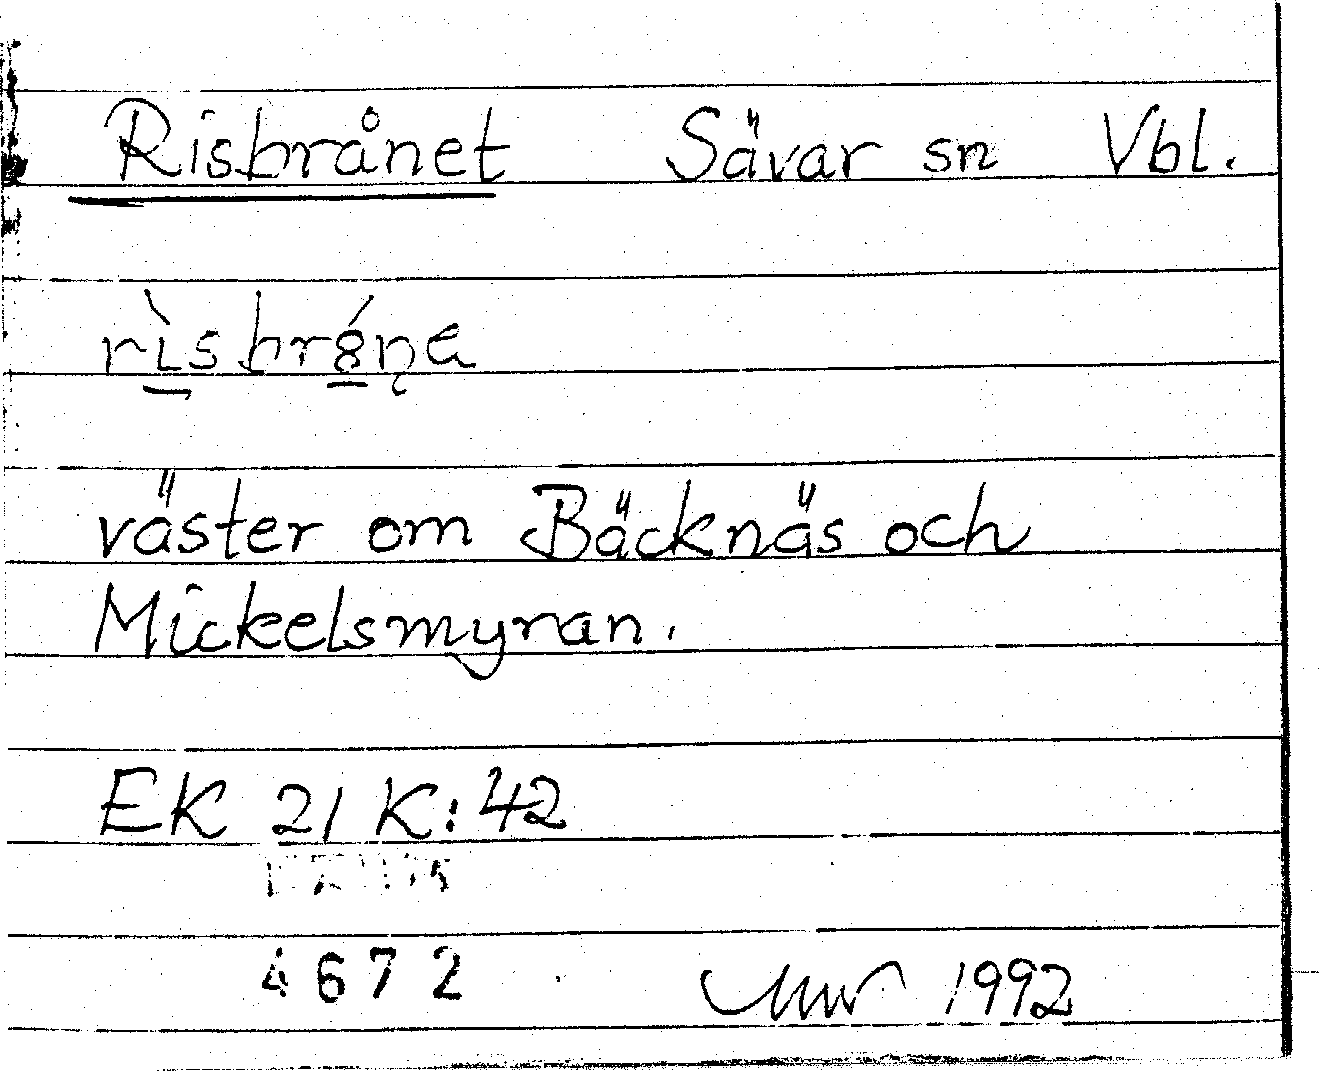 Risbrånet Sävar sn Vbl.
rı̀sbr8́ņa
väster om Bäcknäs och
Mickelsmyran.
EK 21 K:42
4672 1992